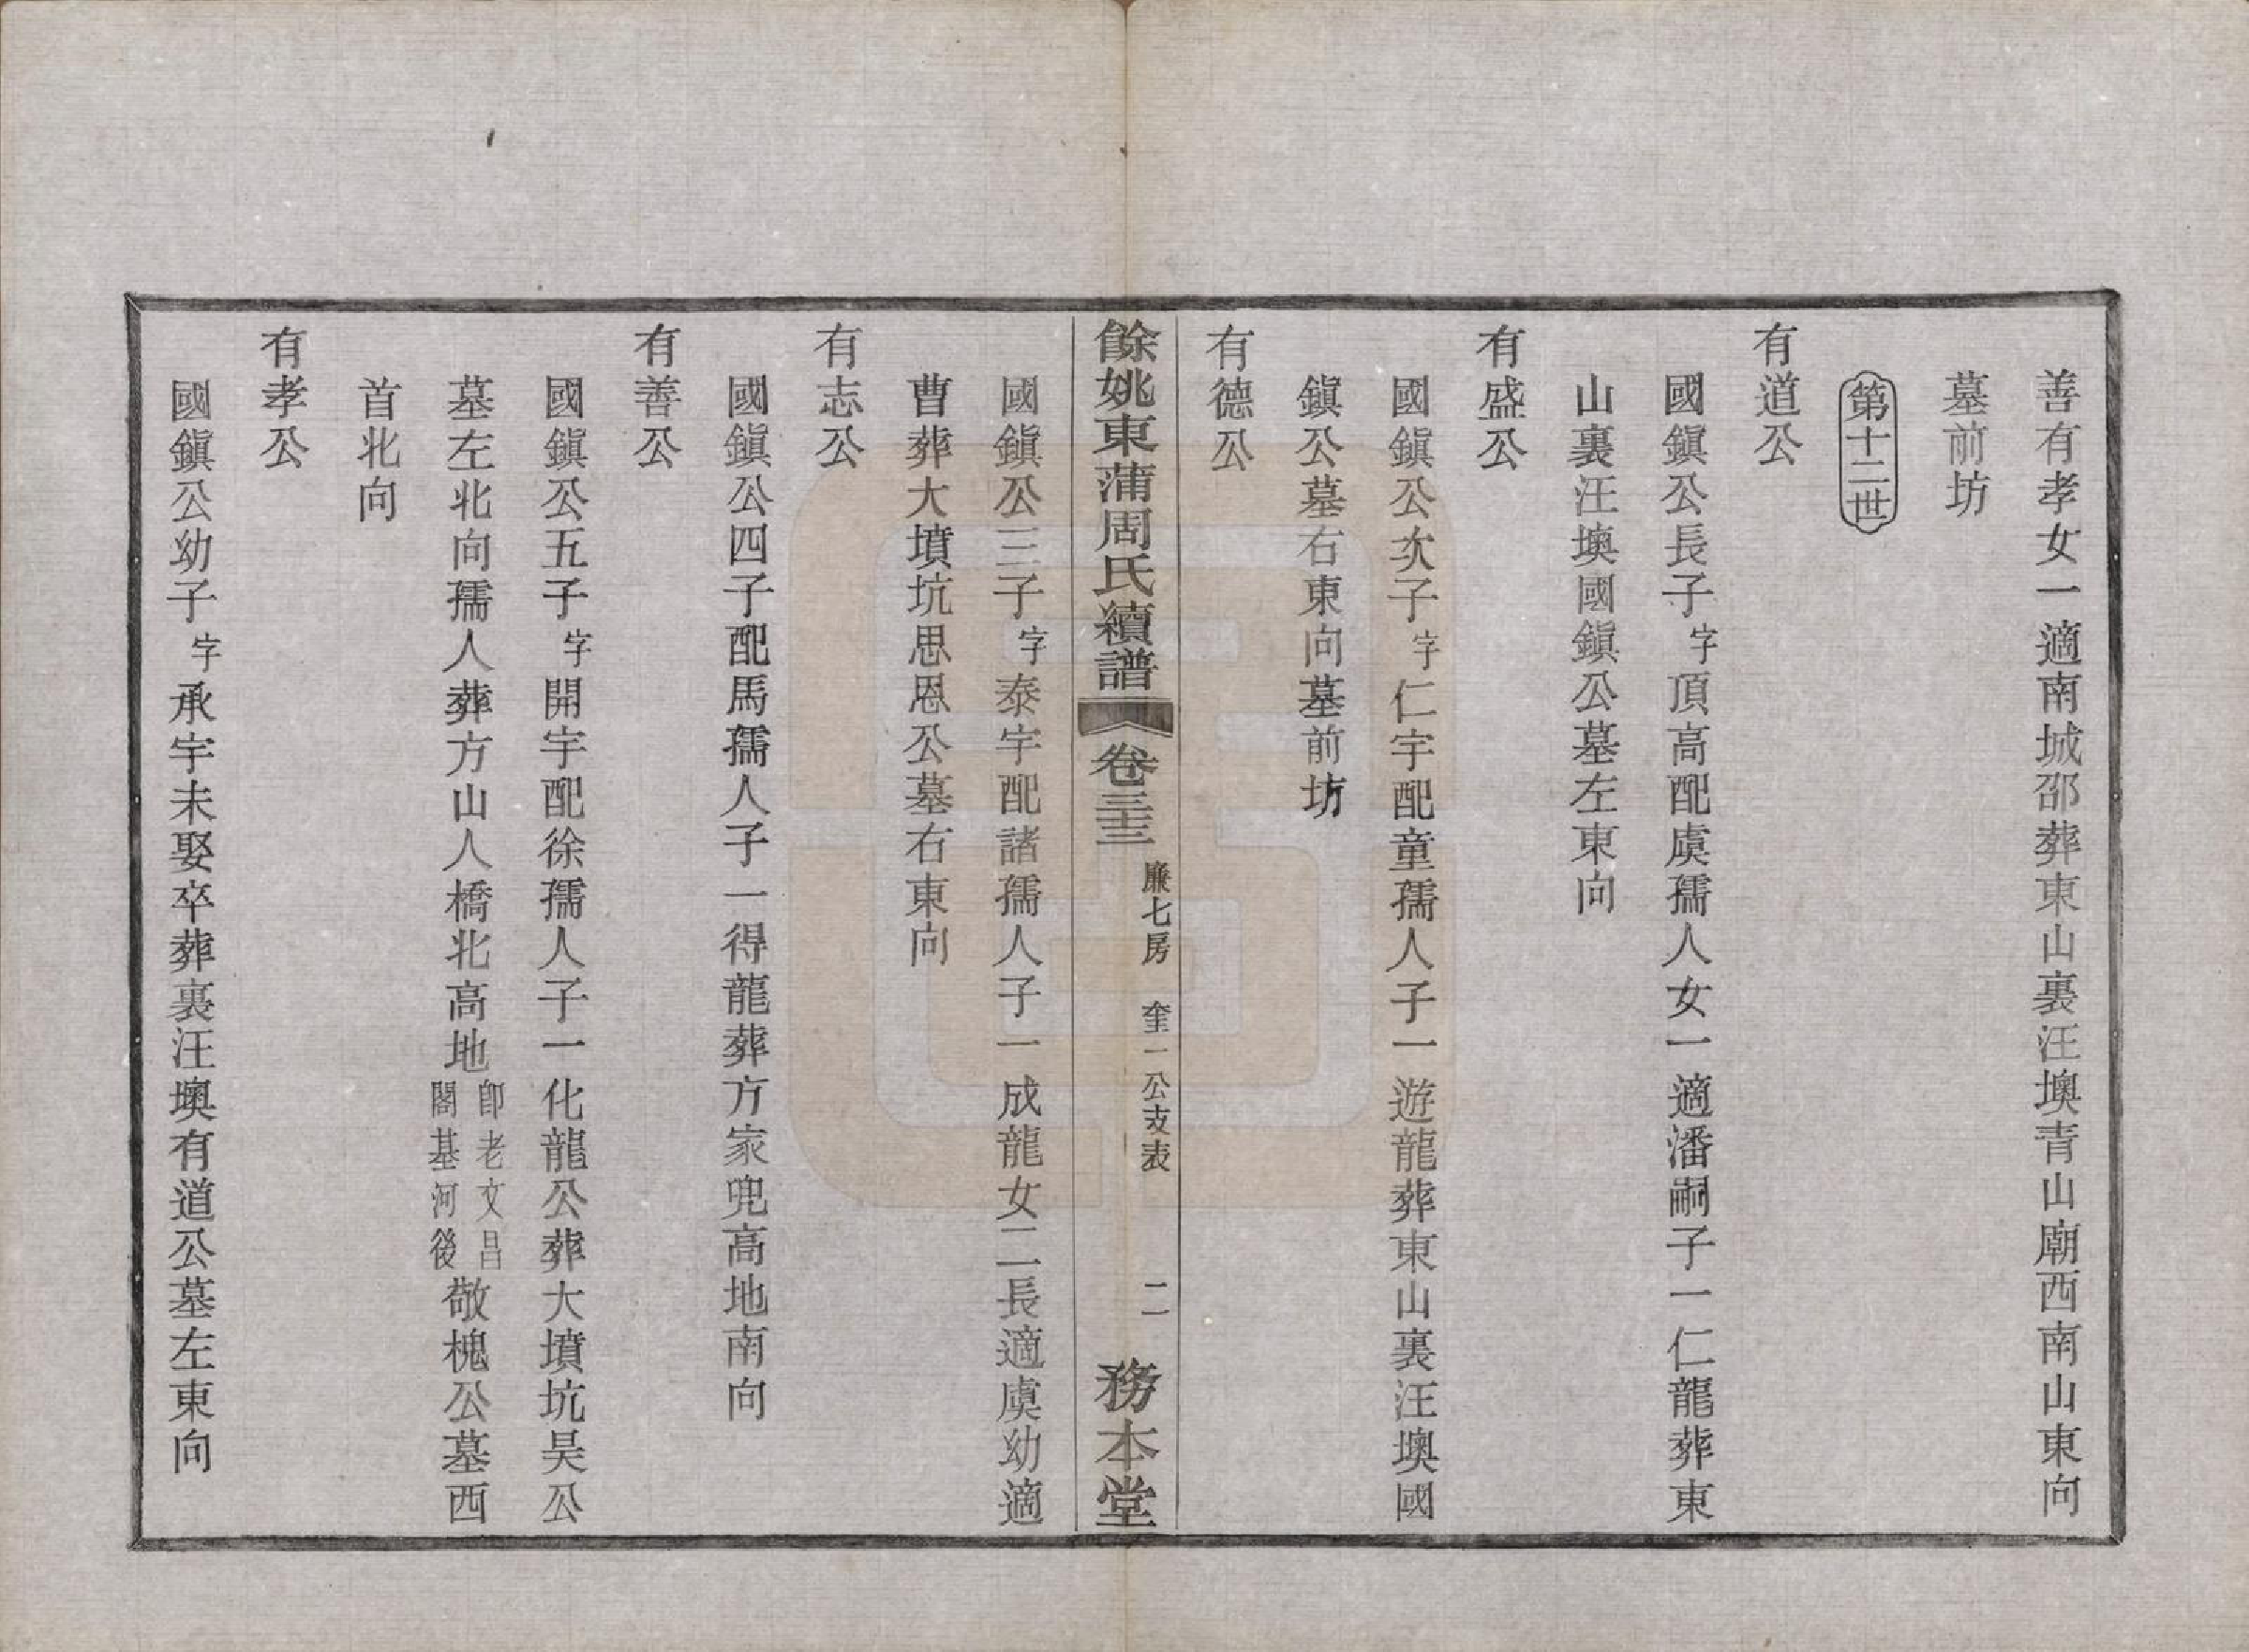 善有孝女一適南城邵葬東山裏汪墺青山廟西南山東向
墓前坊
第十二世
有道公
國鎭公長子字頂高配虞孺人女一適潘嗣子一仁龍葬東
山裏汪墺國鎭公墓左東向
有盛公
國鎭公次子字仁宇配童孺人子一遊龍葬東山裏汪墺國
鎭公墓右東向墓前坊
有德公
餘姚東蒲周氏續譜
卷三十三
廉七房
奎一公支表
二
務本堂
國鎭公三子字泰宇配諸孺人子一成龍女二長適虞幼適
曹葬大墳坑思恩公墓右東向
有志公
國鎭公四子配馬孺人子一得龍葬方家兜高地南向
有善公
國鎭公五子字開宇配徐孺人子一化龍公葬大墳坑昊公
墓左北向孺人葬方山人橋北高地卽老文昌閣基河後敬槐公墓西
首北向
有孝公
國鎭公幼子字承宇未娶卒葬裏汪墺有道公墓左東向